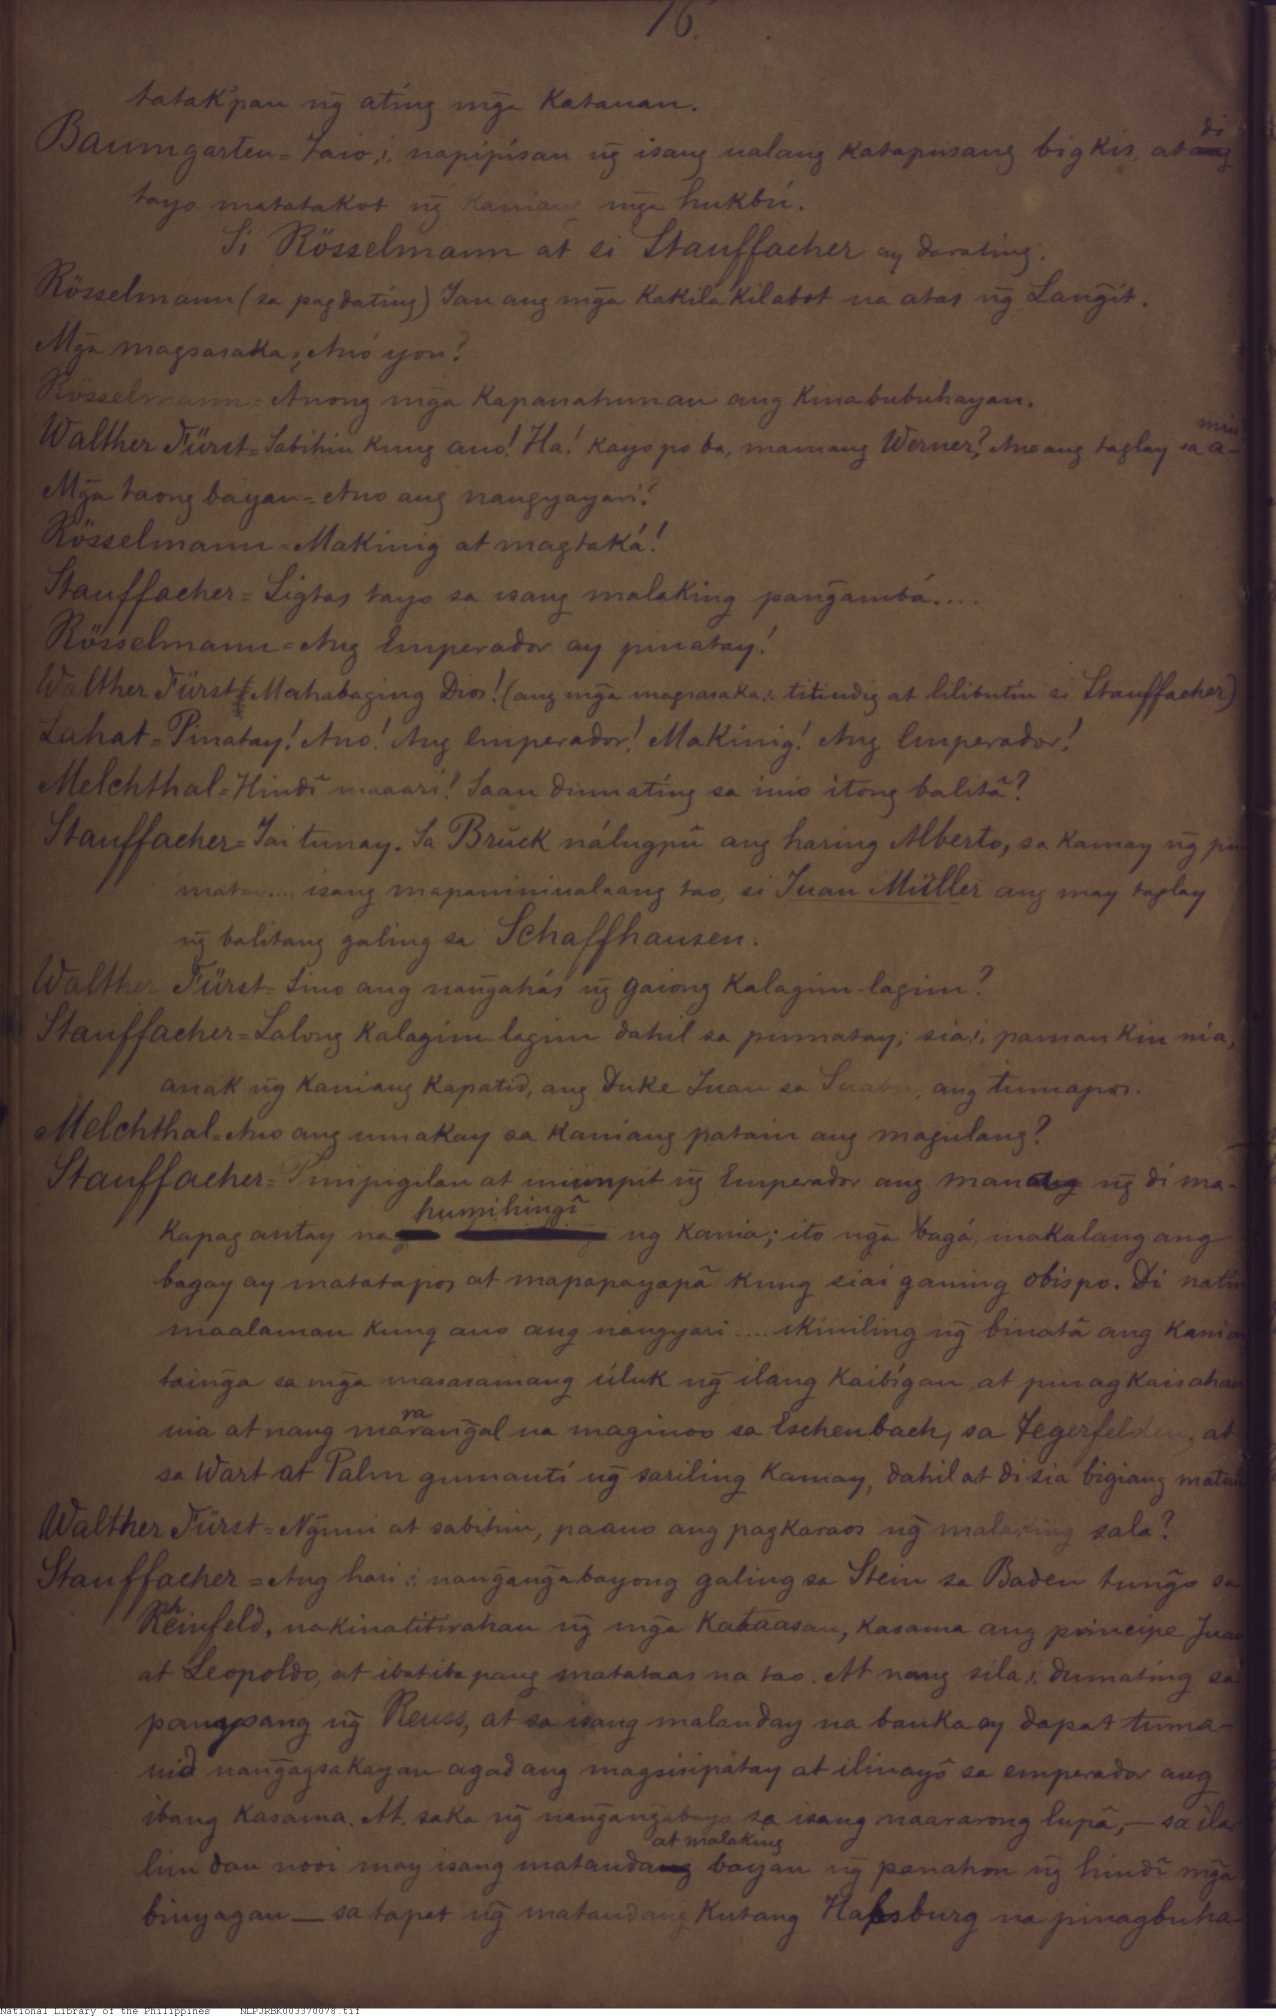 76.
tatak'pan ng̃ ating mg̃a katauan.
Baumgarten = Taio,i, napipisan ng̃ isang ualang katapusang bigkis, at di
tayo matatakot ng̃ kaniang mg̃a hukbú.
Si Rösselmann at si Stauffacher ay darating.
Rösselmann (sa pagdating) Ian ang mg̃a kakilakilabot na atas ng̃ Lang̃it.
Mg̃a magsasaka; Anó yon?
Rösselmann = Anong mg̃a kapanahunan ang kinabubuhayan.
Walther Fürst = Sabihin kung ano! Ha! kayo po ba, mamang Werner? Ano ang taglay sa a-
min
Mg̃a taong bayan = Ano ang nangyayari?
Rösselmann = Makinig at magtaká!
Stauffacher = Ligtas tayo sa isang malaking pang̃ambá....
Rösselmann = Ang Emperador ay pinatay!
Walther Fürst = Mahabaging Dios! (ang mg̃a magsasaka,i, titindig at lilibutin si Stauffacher)
Lahat = Pinatay! Ano! Ang Emperador! Makinig! Ang Emperador!
Melchthal = Hindĩ maaari! Saan dumating sa inio itong balitã?
Stauffacher = Iai tunay. Sa Bruck nálugpũ ang haring Alberto, sa kamay ng̃
.... isang mapaniniualaang tao, si Juan Müller ang may taglay
ng̃ balitang galing sa Schaffhausen.
Walther Fürst = Sino ang nang̃ahás ng̃ gaiong kalagim-lagim?
Stauffacher = Lalong kalagim lagim dahil sa pumatay; sia,i, pamankin nia,
anak ng̃ kaniang kapatid, ang Duke Juan sa Suabia, ang tumapos.
Melchthal = Ano ang umakay sa kaniang patain ang magulang?
Stauffacher = Pinipigilan at iniimpit ng̃ Emperador ang mana ng̃ di ma-
kapag antay na humihingĩ ng kania; ito ng̃a bagá, makalang ang
bagay ay matatapos at mapapayapã kung siai gauing obispo. Di natin
maalaman kung ano ang nangyari .... ikiniling ng̃ binatã ang kaniang
taing̃a sa mg̃a masasamang úluk ng̃ ilang kaibigan at pinagkaisahan
nia at nang mararang̃al na maginoo sa Eschenbach, sa Tegerfelden, at
sa Wart at Palm gumantí ng̃ sariling kamay, dahil at di sia bigiang matuid
Walther Fürst = Ng̃uni at sabihin, paano ang pagkaraos ng̃ malaking sala?
Stauffacher = Ang hari,i, nang̃ang̃abayong galing sa Stein sa Baden tung̃o sa
Rheinfeld, na kinatitirahan ng̃ mg̃a kataasan, kasama ang principe Juan
at Leopoldo, at ibat iba pang matataas na tao. At nang sila,i, dumating sa
pangpang ng̃ Reuss, at sa isang malanday na banka ay dapat tuma-
uid nang̃agsakayan agad ang magsisipátay at ilinayõ sa emperador ang
ibang kasama. At saka ng̃ nang̃ang̃abayo sa isang naararong lupã, — sa ila-
lim dau nooi may isang matanda at malaking bayan ng̃ panahon ng̃ hindĩ mg̃a
binyagan — sa tapat ng̃ matandang kutang Habsburg na pinagbuha-
National Library of the Philippines NLPJRBK003370078.tif